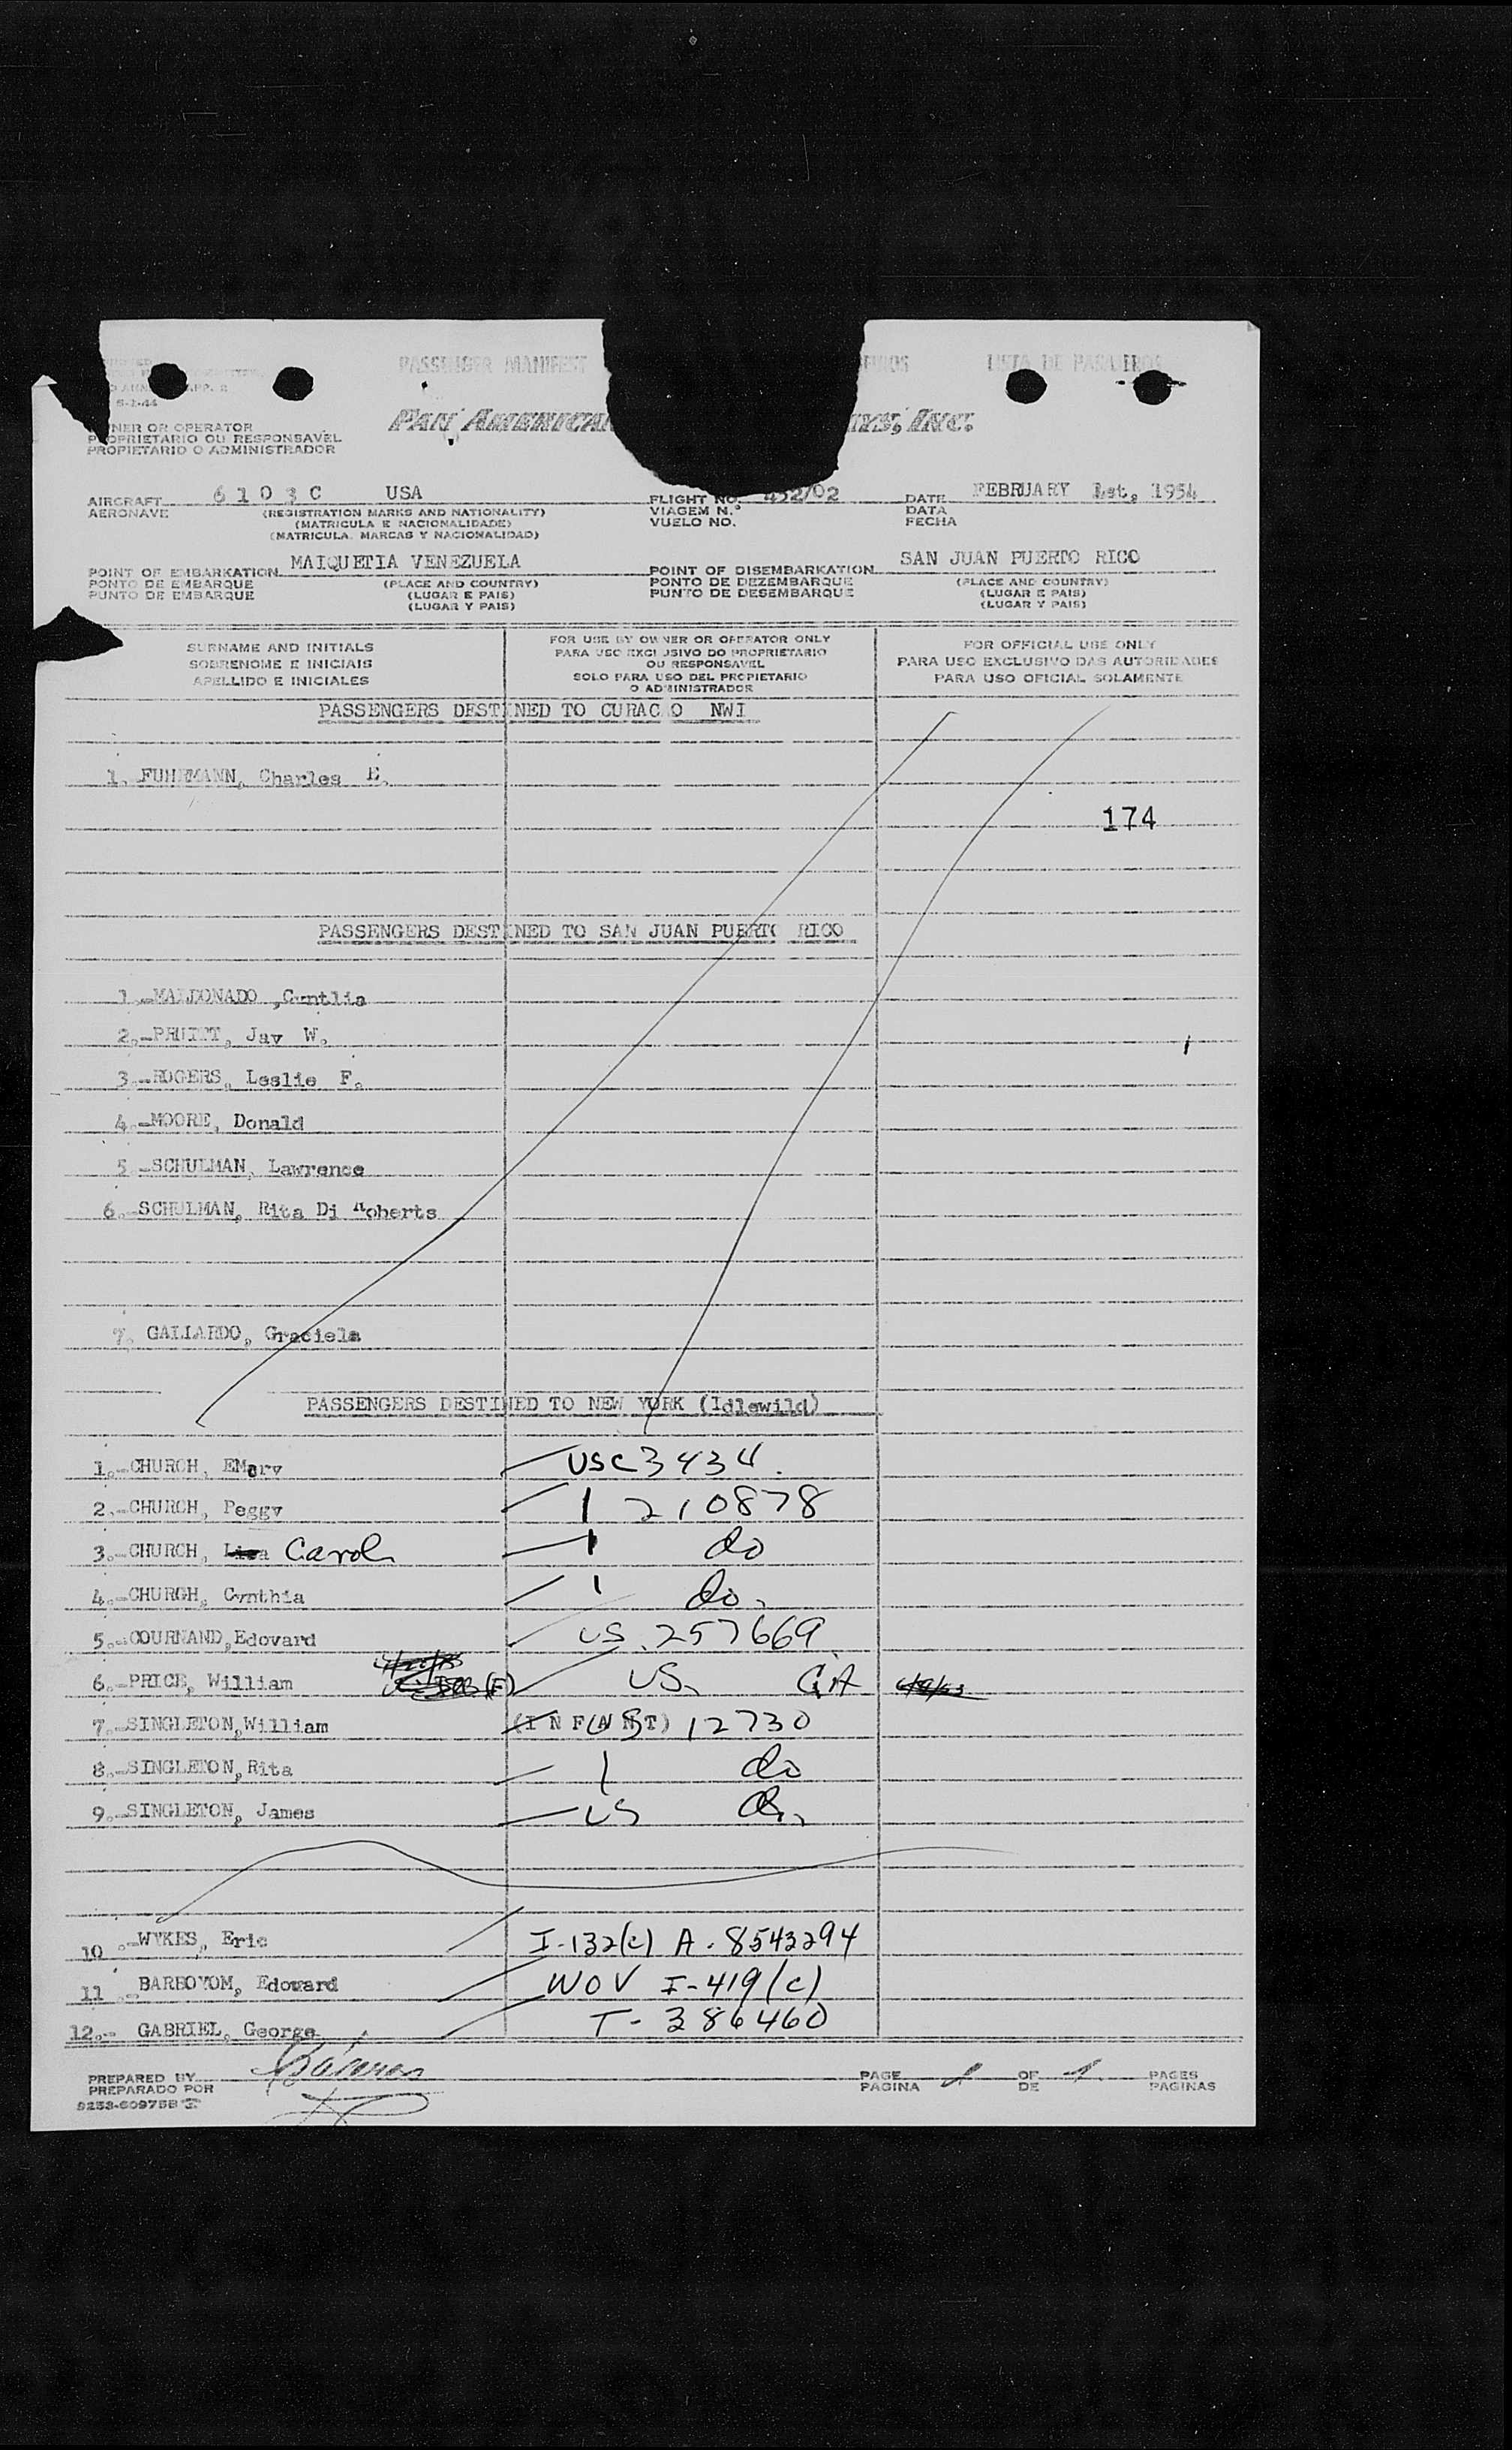 PASSENGER MANIFEST LISTA DE PASAJEROS
5-1-44
OWNER OR OPERATOR
PROPRIETARIO OU RESPONSAVEL
PROPIETARIO O ADMINISTRADOR
PAN AMERICAN INC.
AIRCRAFT 6103C USA FLIGHT NO. 452/02 DATE FEBRUARY 1st, 1954
AERONAVE (REGISTRATION MARKS AND NATIONALITY) VIAGEM N.º DATA
(MATRICULA E NACIONALIDADE) VUELO NO. FECHA
(MATRICULA, MARCAS Y NACIONALIDAD)
POINT OF EMBARKATION MAIQUETIA VENEZUELA POINT OF DISEMBARKATION SAN JUAN PUERTO RICO
PONTO DE EMBARQUE (PLACE AND COUNTRY) PONTO DE DEZEMBARQUE (PLACE AND COUNTRY)
PUNTO DE EMBARQUE (LUGAR E PAIS) PUNTO DE DESEMBARQUE (LUGAR E PAIS)
(LUGAR Y PAIS) (LUGAR Y PAIS)
SURNAME AND INITIALS FOR USE BY OWNER OR OPERATOR ONLY FOR OFFICIAL USE ONLY
SOBRENOME E INICIAIS PARA USO EXCLUSIVO DO PROPRIETARIO PARA USO EXCLUSIVO DAS AUTORIDADES
APELLIDO E INICIALES OU RESPONSAVEL PARA USO OFICIAL SOLAMENTE
SOLO PARA USO DEL PROPIETARIO
O ADMINISTRADOR
PASSENGERS DESTINED TO CURACAO NWI
1. FUHRMANN, Charles E.
174
PASSENGERS DESTINED TO SAN JUAN PUERTO RICO
1.-MALDONADO ,Cyntlia
2.-PRUITT, Jay W.
3.-ROGERS, Leslie F.
4.-MOORE, Donald
5.-SCHULMAN, Lawrence
6.-SCHULMAN, Rita Di Roberts
7. GALLARDO, Graciela
PASSENGERS DESTINED TO NEW YORK (Idlewild)
1.-CHURCH, EMory USC 3434.
2.-CHURCH, Peggy 1 210878
3.-CHURCH, Lisa Carol 1 do
4.-CHURCH, Cynthia 1 do.
5.-COURNAND,Edovard US. 257669
6.-PRICE, William (F) US.
7.-SINGLETON,William (INFANT) US 12730
8.-SINGLETON,Rita 1 do
9.-SINGLETON, James US do.
10.-WYKES, Eric I-132(c) A-8543294
11.- BARBOYOM, Edouard WOV I-419(c)
12.- GABRIEL, George T-386460
PREPARED BY PAGE 1 OF 1 PAGES
PREPARADO POR PAGINA DE PAGINAS